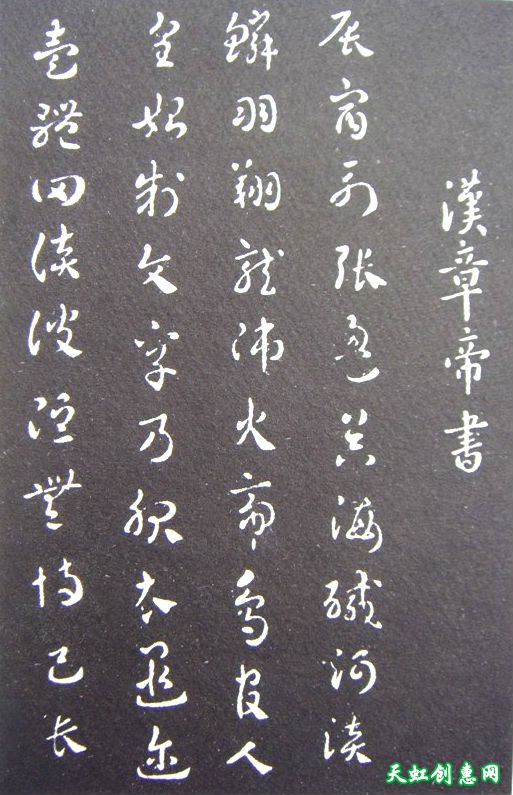 漢章帝書
辰宿列張海鹹河淡
鱗羽翔龍師火帝鳥官人
皇始制文字乃服衣遐迩
壹體罔談彼短靡恃己長
天虹创惠网